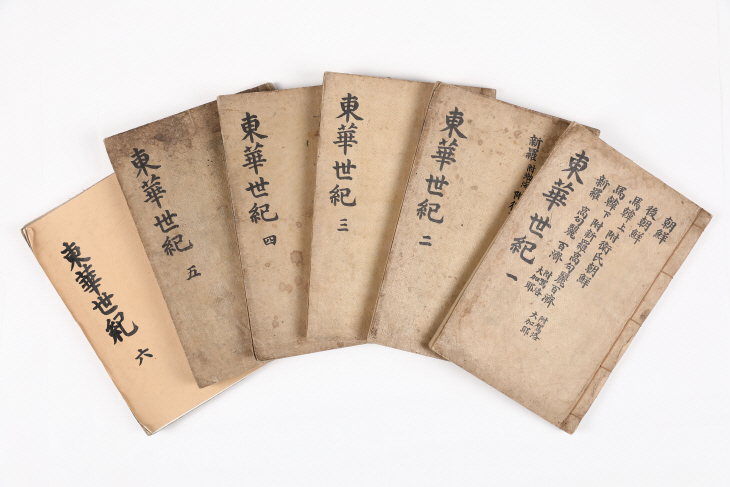 朝鮮
後朝鮮
馬韓上 附衛氏朝鮮
馬韓下 附新羅高句麗百濟 附駕洛 大加耶
新羅 高句麗 百濟 附駕洛 大加耶
東華世紀 一
新羅
東華世紀 二
東華世紀 三
東華世紀 四
東華世紀 五
東華世紀 六